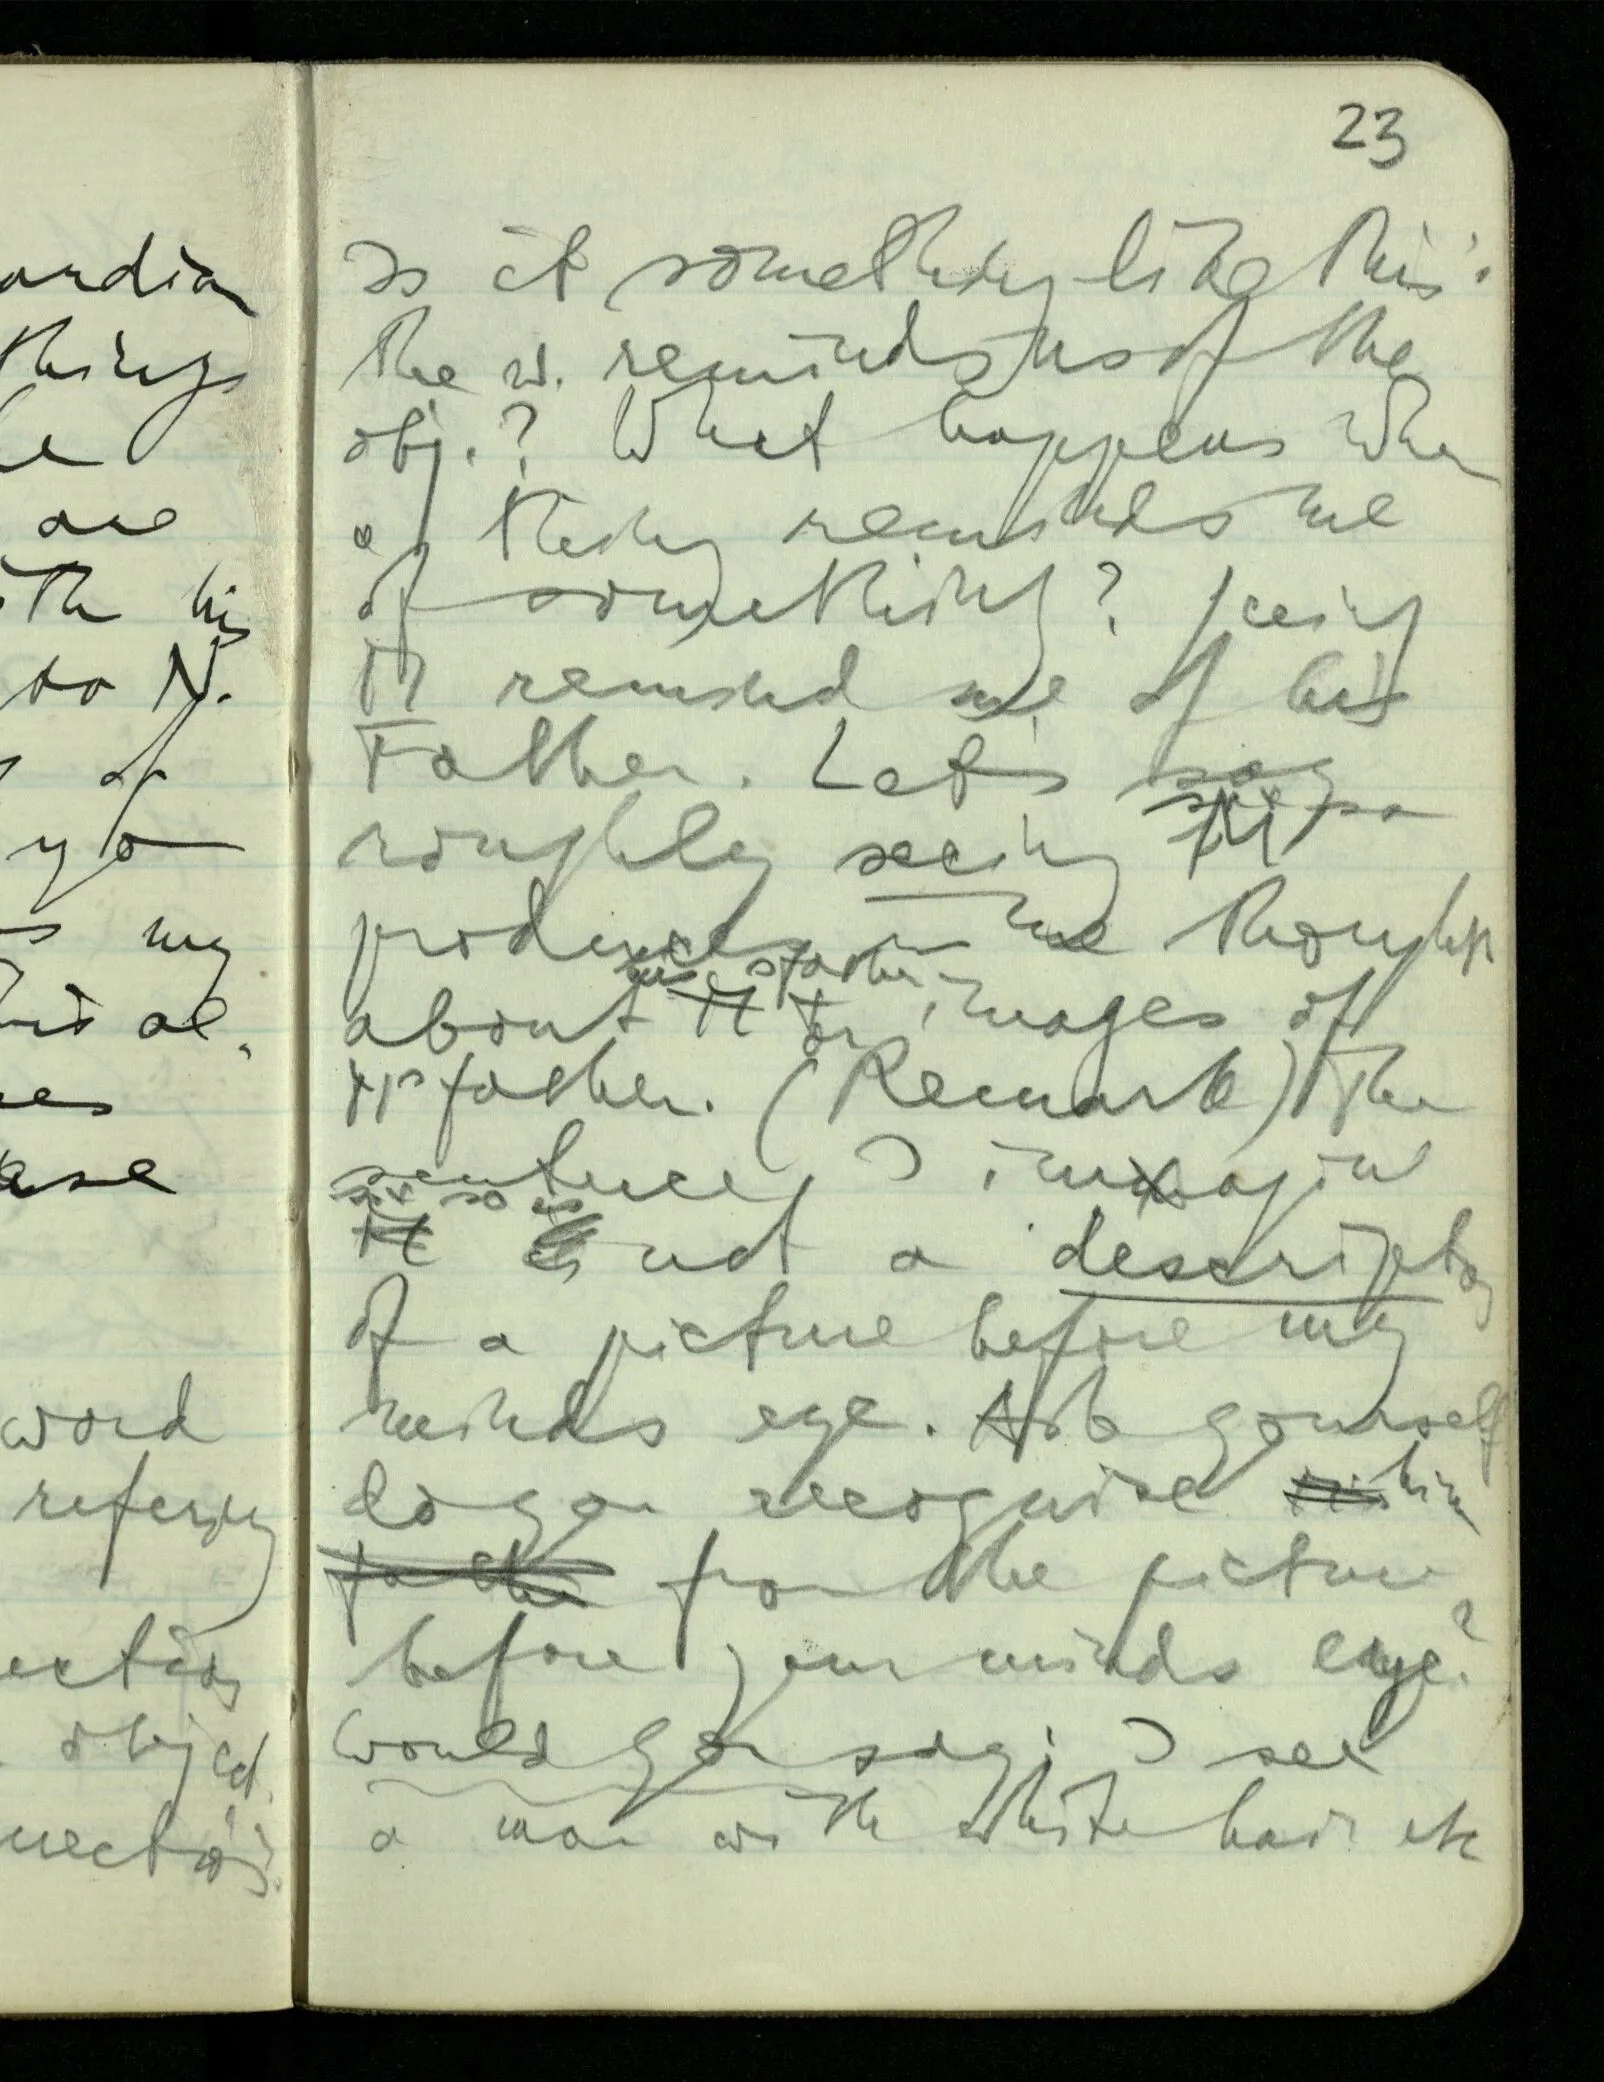 23
ardian
things
he
are
ith his
to N.
of
my
ase
word
referring
ection
object.
nection?
Is it something like this:
the w. reminds us of the
obj.? What happens when
a thing reminds me
of something? Seeing
M remind me of his
Father. Let's say
roughly seeing M
produces in me thoughts
about his father or images of
father. (Remark) The
sentence, I imagine
so & so is not a description
of a picture before my
minds eye. Ask yourself
do you recognise him
from the picture
before your minds eye?
Would you say; I see
a man with white hair etc